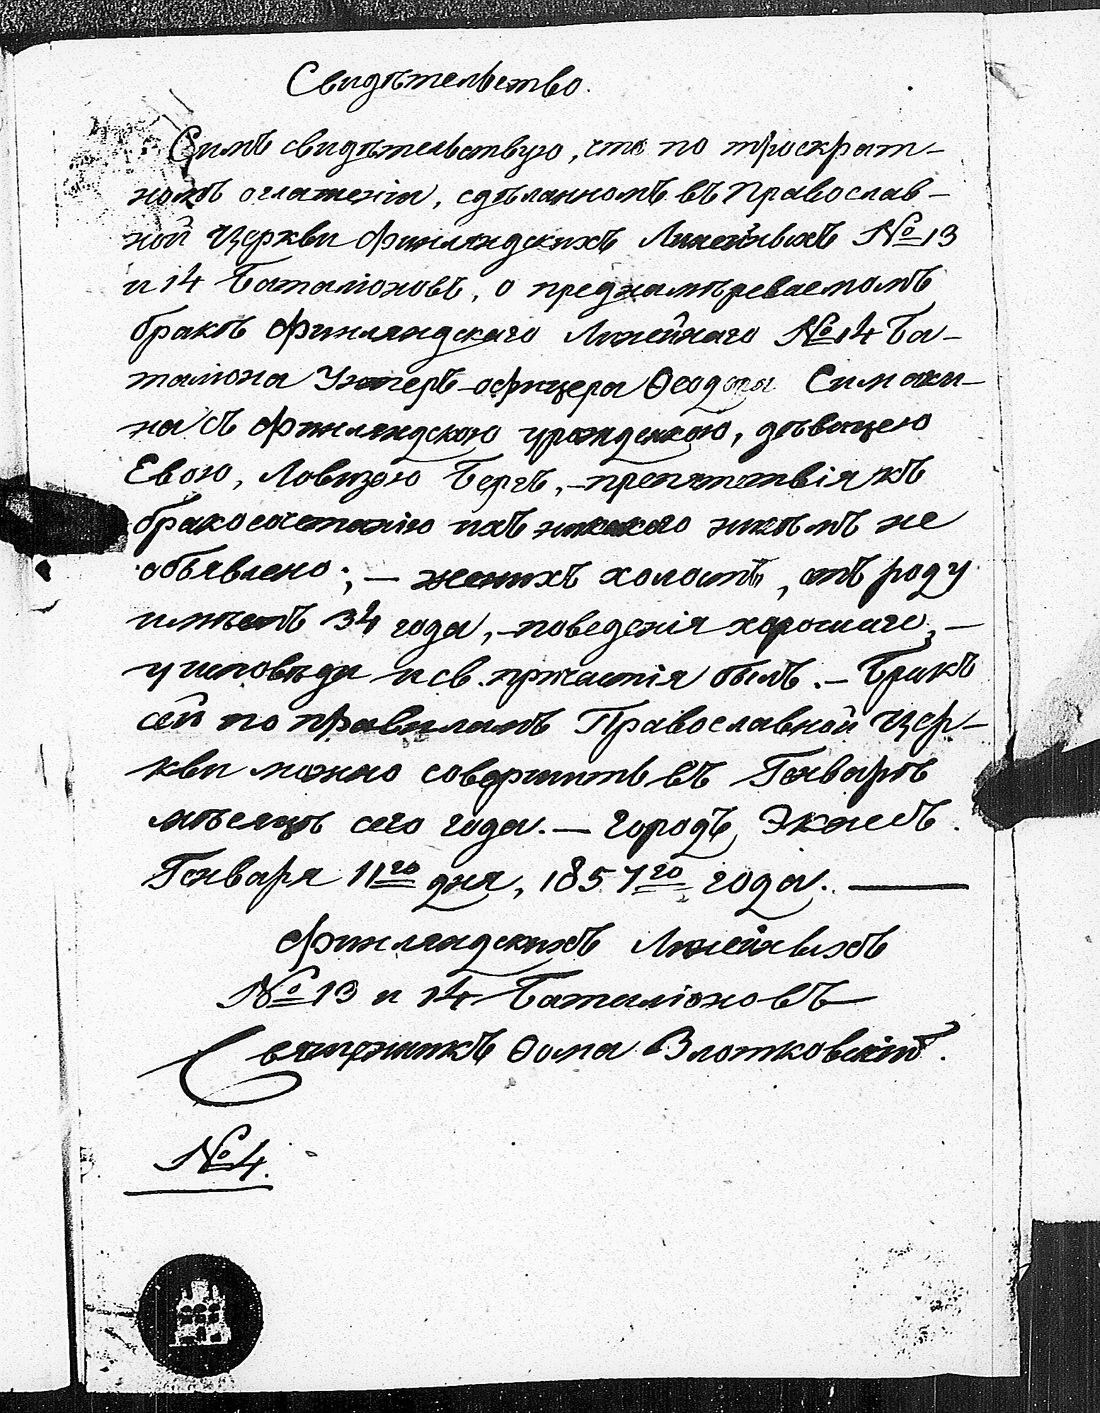 Свидѣтельство.
Симъ свидѣтельствую, что по троекрат-
номъ оглашеніи, сдѣланномъ въ Православ-
ной Церкви Финляндскихъ Линейныхъ № 13
и 14 Баталіоновъ, о преднамѣреваемомъ
бракѣ Финляндскаго Линейнаго № 14 Ба-
таліона Унтеръ-офицера Ѳеодора Симахи-
на съ Финляндскою урожденкою, дѣвицею
Евою, Ловизою Бергъ, - препятствія къ
бракосочетанію ихъ никакого никѣмъ не
объявлено; - женихъ холостъ, отъ роду
имѣетъ 34 года, - поведенія хорошаго, -
у исповѣди и св. причастія былъ. - Бракъ
сей по правиламъ Православной Цер-
кви можно совершить въ Генварѣ
мѣсяцѣ сего года. - Городъ Экнесъ.
Генваря 11го дня, 1857го года. —
Финляндскихъ Линейныхъ
№ 13 и 14 Баталіоновъ
Священникъ Ѳома Злотковскій.
№ 4.